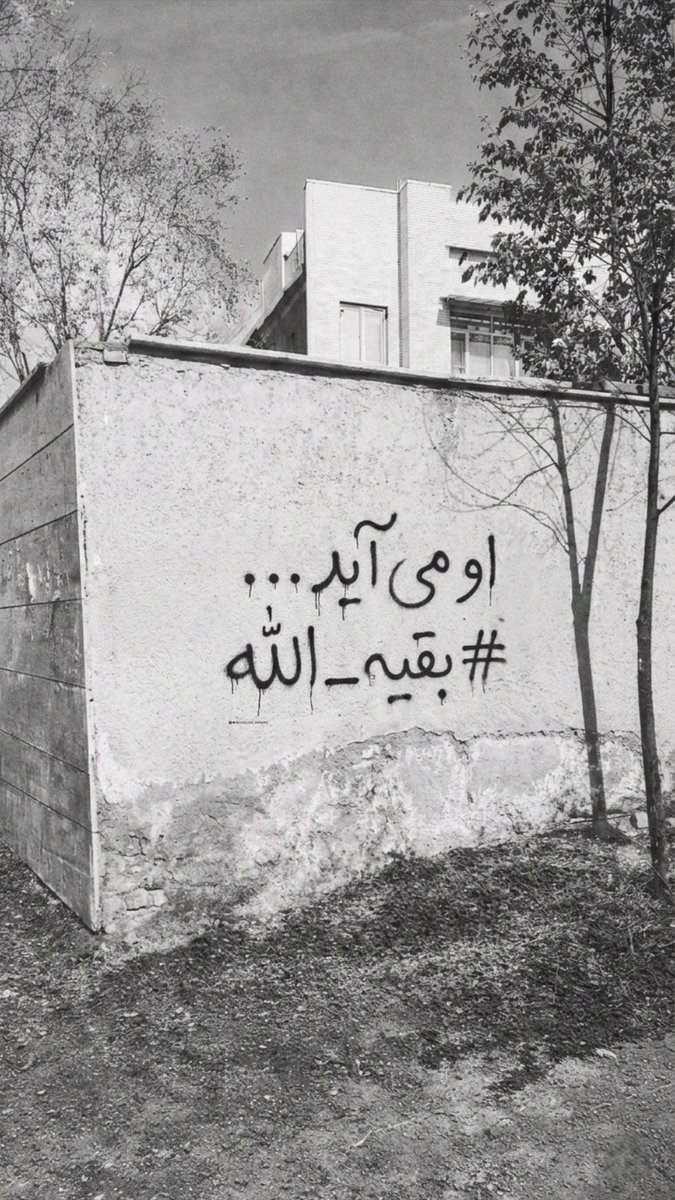 او می آید...
#بقیه_الله